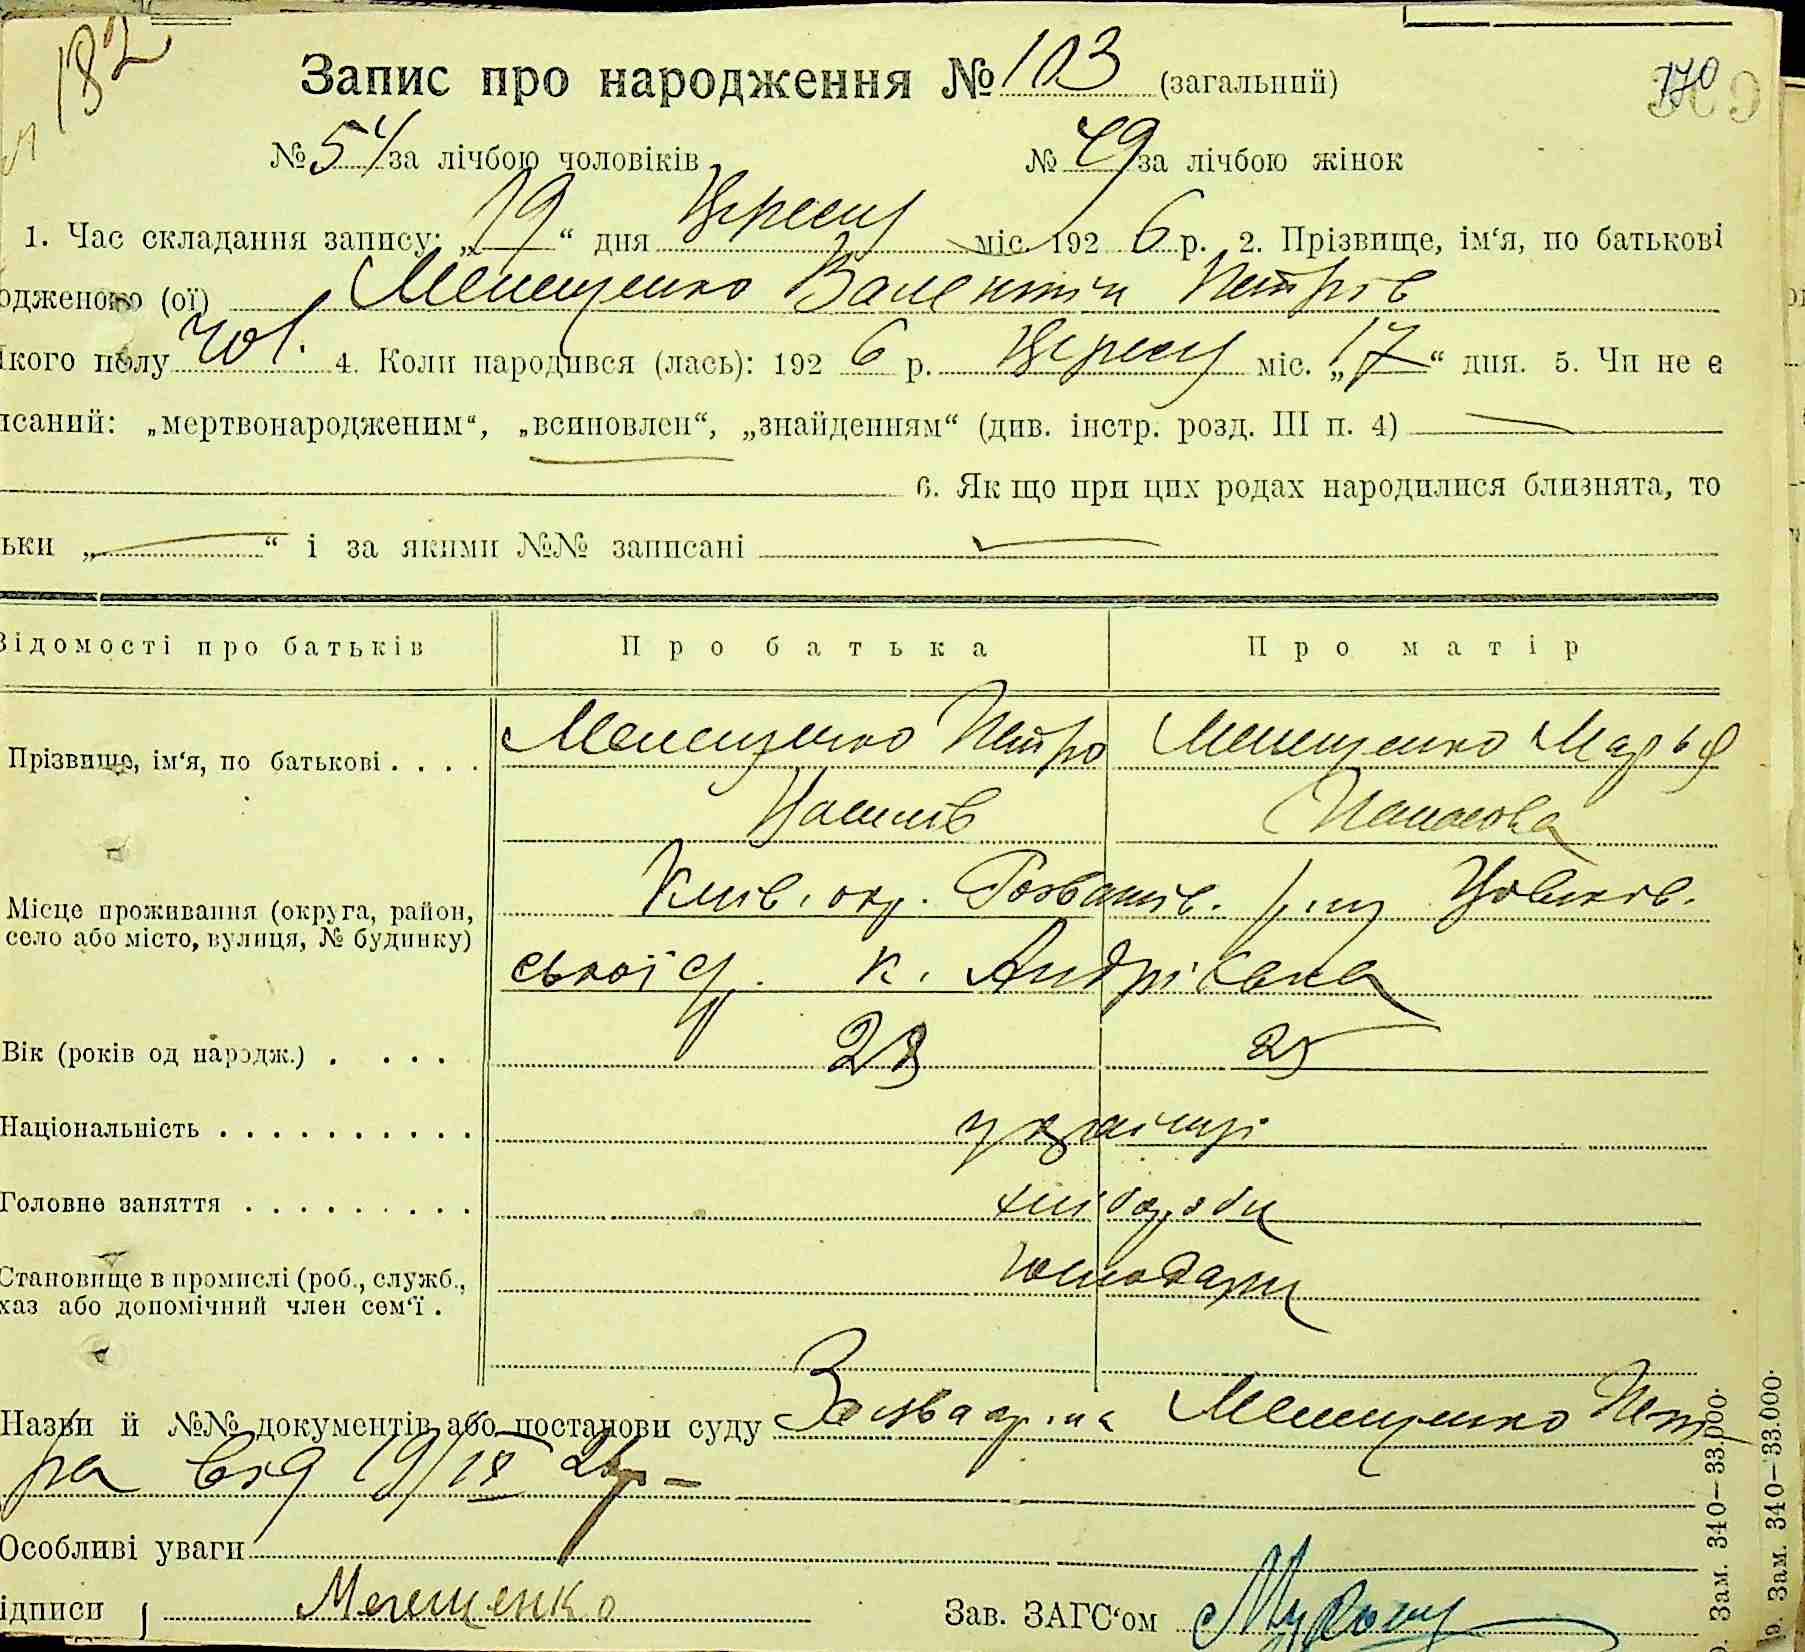 182
Запис про народження № 103 (загальний)
170
№ 54 за лічбою чоловіків № 49 за лічбою жінок
1. Час складання запису: „19“ дня Вересня міс. 1926 р. 2. Прізвище, ім‘я, по батькові
одженого (ої) Мелещенко Валентін Петрів
якого полу чол. 4. Коли народився (лась): 1926 р. Вересня міс. „17“ дня. 5. Чи не є
исаний: „мертвонародженим“, „всиновлен“, „знайденням“ (див. інстр. розд. III п. 4)
6. Як що при цих родах народилися близнята, то
ьки „ “ і за якими №№ записані
Відомості про батьків Про батька Про матір
Мелещенко Петро Мелещенко Марья
Прізвище, ім‘я, по батькові . . . .
Панасова
Київ. окр. Розважів. р.ну
Місце проживання (округа, район,
село або місто, вулиця, № будинку)
ської с/р. х. Андріївка
Вік (років од народж.) . . . . 23 25
Національність . . . . . . . . . . українці
Головне заняття . . . . . . . . . хлібороби
Становище в промислі (роб., служб.,
хаз або допомічний член сем‘ї . господарі
Назви й №№ документів або постанови суду Мелещенко Пет
ра від 19/IX 26р –
Особливі уваги
ідписи Мелещенко Зав. ЗАГС‘ом
Зам. 340—33.000.
Зам. 340—33.000.